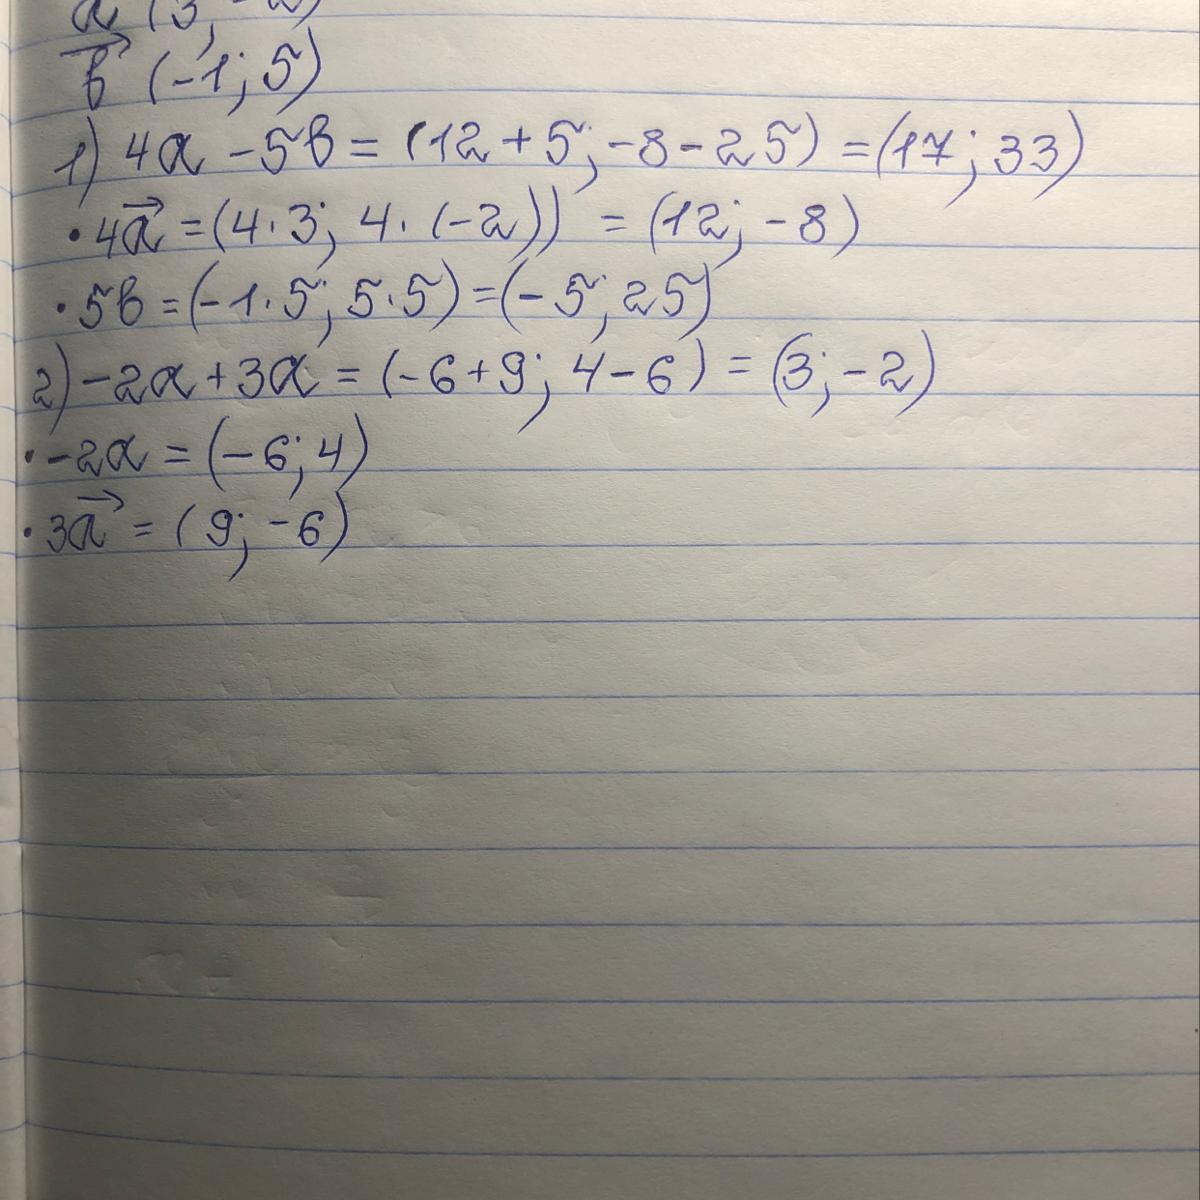 a (3; -2)
b (-1; 5)
1) 4a - 5b = (12 + 5; -8 - 25) = (17; 33)
• 4a = (4 · 3; 4 · (-2)) = (12; -8)
• 5b = (-1 · 5; 5 · 5) = (-5; 25)
2) -2a + 3a = (-6 + 9; 4 - 6) = (3; -2)
• -2a = (-6; 4)
• 3a = (9; -6)